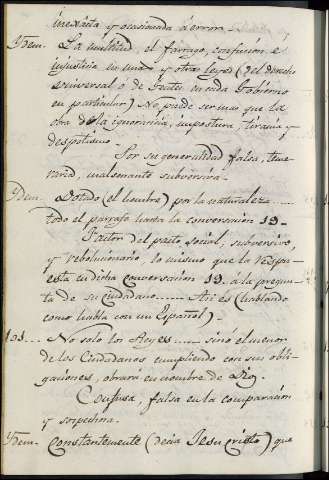 inexacta y ocasionada á error.
Ydem. La multitud, el farrago, confusion e
injusticia en unas y otras leyes (del derecho
universal ó de Gentes en cada Gobierno
en particular) No puede ser mas que la
obra de la ignorancia, impostura, tirania y
despotismo.
Por su generalidad falsa, teme
raria, malsonante subversiva.
Ydem. Dotado (el hombre) por la naturaleza
todo el parrafo hasta la conversacion 19.
Fautor del pacto social, subversivo,
y rebolucionario, lo mismo que la respu-
esta en dicha Conversacion 19. á la pregun-
ta de su Ciudadano ...... Asi es (hablando
como habla con un Español).
101... No solo los Reyes ...... sinó el menor
de los Ciudadanos cumpliendo con sus obli-
gaciones, obrará en nombre de Dios.
Confusa, falsa en la comparacion
y sospechosa.
Ydem. Constantemente (decia Jesu Cristo) que